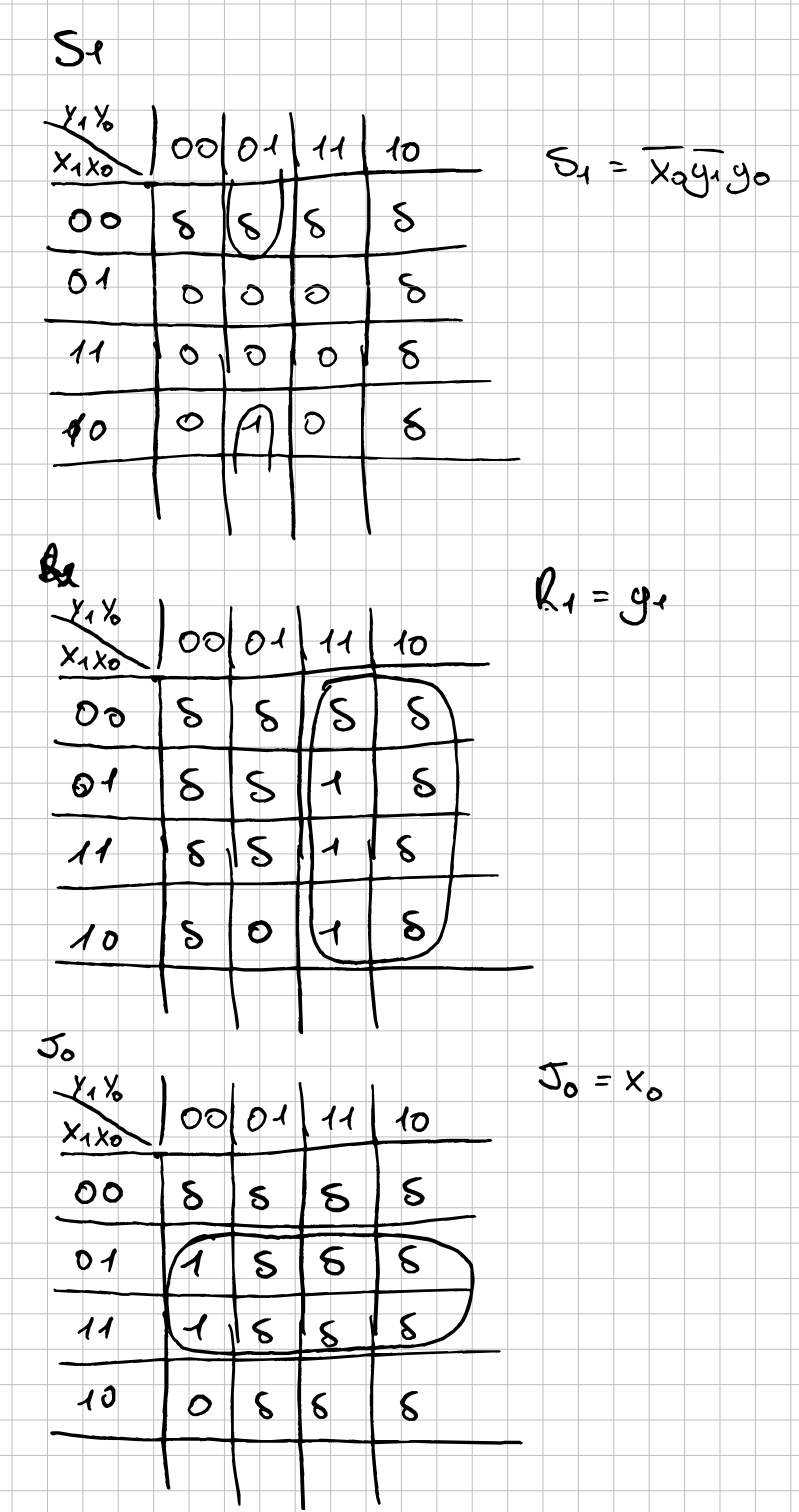 S1
Y1 Y0
X1X0 00 01 11 10
S1 = x̅0y̅1y0
00 δ δ δ δ
01 0 0 0 δ
11 0 0 0 δ
10 0 1 0 δ
R1 = y1
Y1 Y0
X1X0 00 01 11 10
00 δ δ δ δ
01 δ δ 1 δ
11 δ δ 1 δ
10 δ 0 1 δ
J0
J0 = x0
Y1 Y0
X1X0 00 01 11 10
00 δ δ δ δ
01 1 δ δ δ
11 1 δ δ δ
10 0 δ δ δ